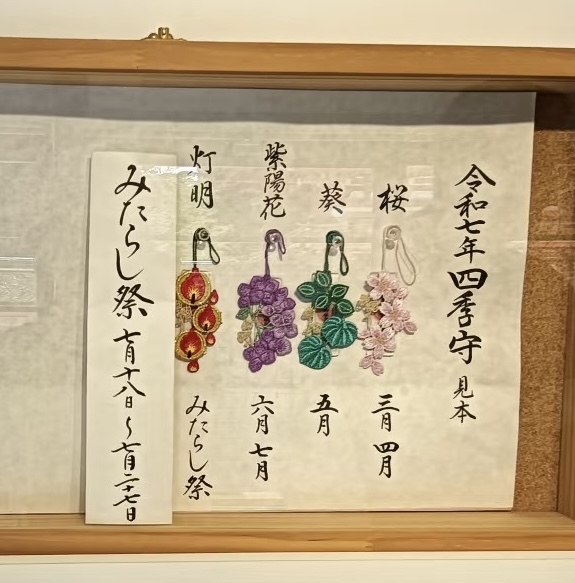 令和七年四季守 見本
桜
三月 四月
葵
五月
紫陽花
六月 七月
灯明
みたらし祭
みたらし祭 七月十八日〜七月二十七日